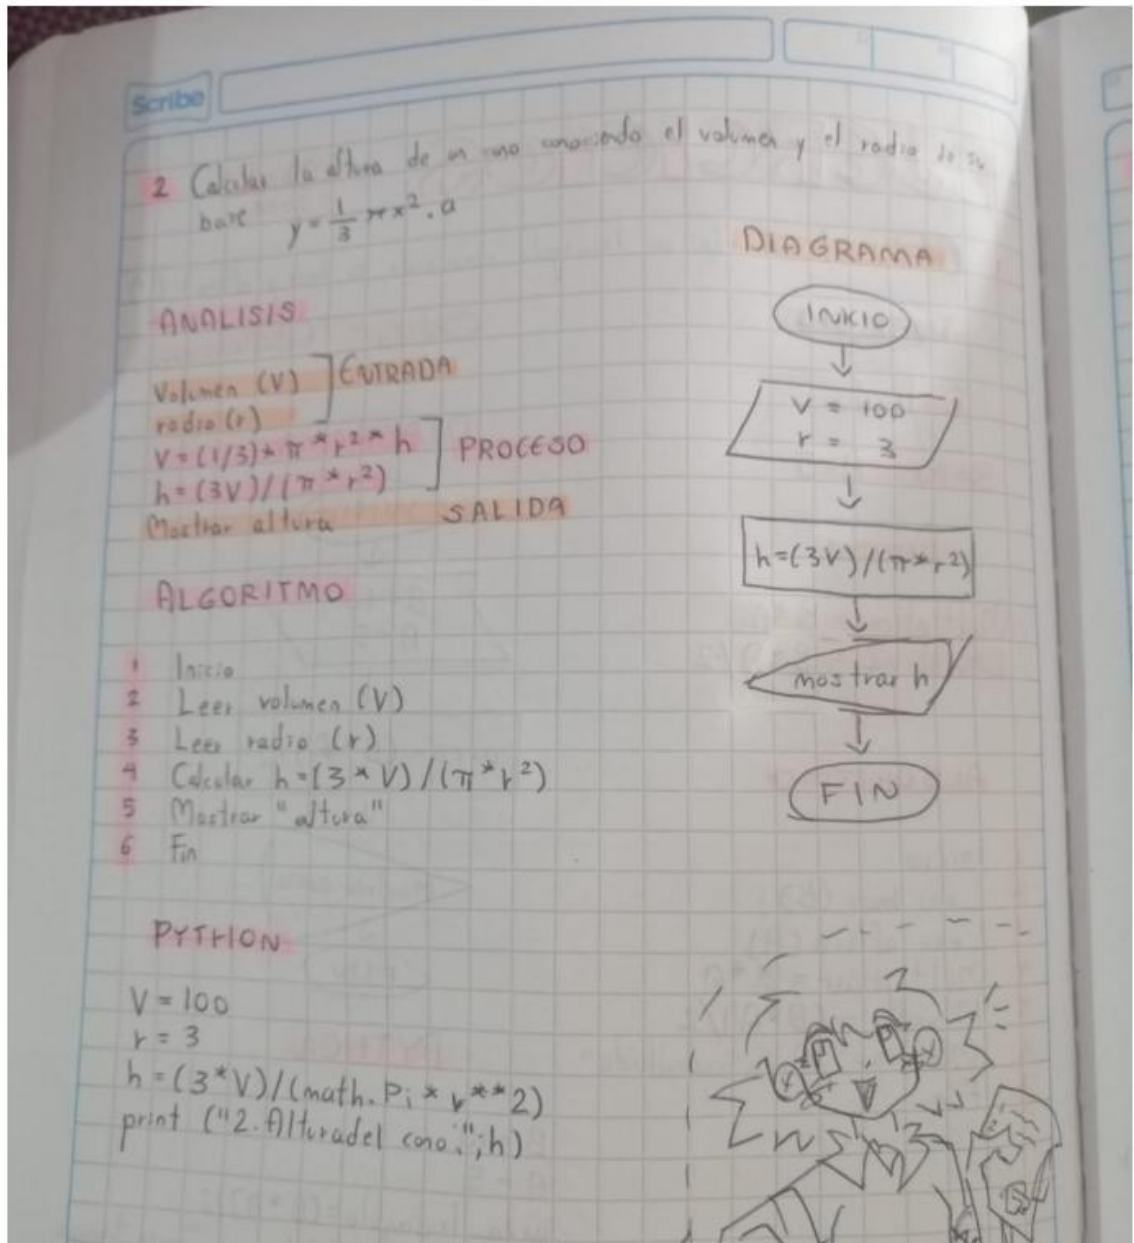 Scribe
2 Calcular la altura de un cono conociendo el volumen y el radio de su
base y = 1/3 πx². a
ANALISIS
Volumen (V)
radio (r)
ENTRADA
V = (1/3) * π * r² * h
h = (3V) / (π * r²)
PROCESO
Mostrar altura
SALIDA
ALGORITMO
1 Inicio
2 Leer volumen (V)
3 Leer radio (r)
4 Calcular h = (3 * V) / (π * r²)
5 Mostrar "altura"
6 Fin
PYTHON
V = 100
r = 3
h = (3*V)/(math.Pi * r**2)
print ("2. Alturadel cono:";h)
DIAGRAMA
INICIO
V = 100
r = 3
h = (3V) / (π * r²)
mostrar h
FIN